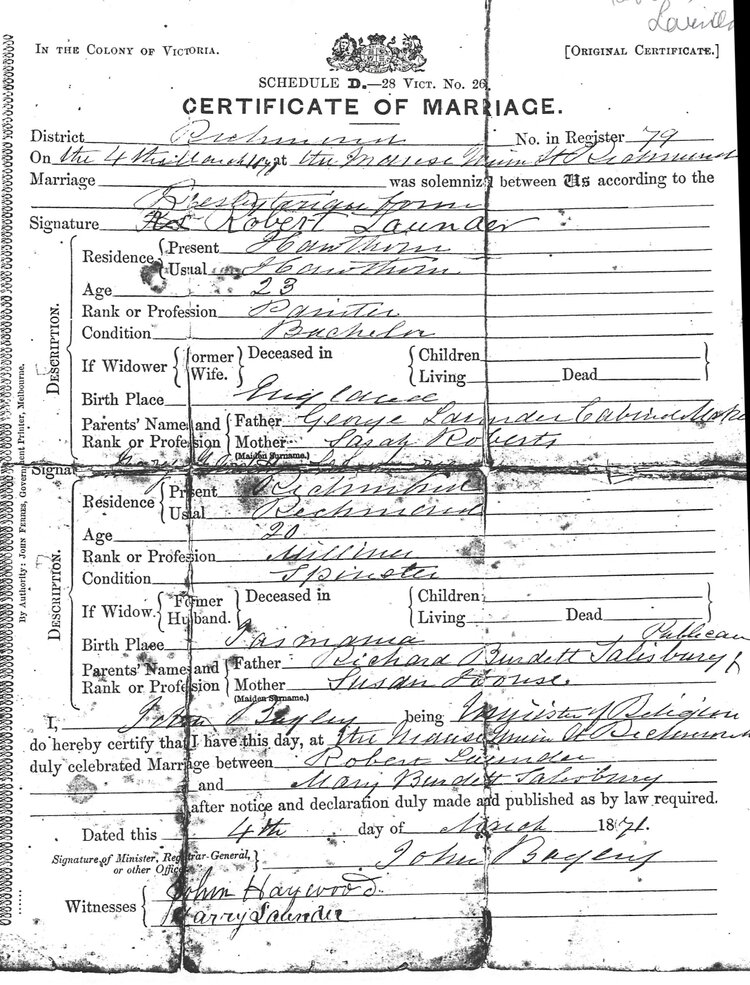 Lavinia
IN THE COLONY OF VICTORIA.
[ORIGINAL CERTIFICATE.]
SCHEDULE D.—28 VICT. No. 26.
CERTIFICATE OF MARRIAGE.
District Richmond No. in Register 79
On the 4th March 1871 at the Manse Richmond
Marriage was solemnized between Us according to the
Presbyterian form
Signature Robert Launder
Residence Present Hawthorn
Usual Hawthorn
Age 23
Rank or Profession Painter
Condition Bachelor
If Widower Former Wife. Deceased in Children
Living Dead
Birth Place England
Parents' Names and Father George Launder Cabinet Maker
Rank or Profession Mother Sarah Roberts
(Maiden Surname.)
Signat
Residence Present Richmond
Usual Richmond
Age 20
Rank or Profession Milliner
Condition Spinster
If Widow. Former Husband. Deceased in Children
Living Dead
Birth Place Tasmania Publican
Parents' Names and Father Richard Burdett Salisbury
Rank or Profession Mother Susan
(Maiden Surname.)
DESCRIPTION.
DESCRIPTION.
By Authority: JOHN FERRES, Government Printer, Melbourne.
I, John Bagley being Minister of Religion
do hereby certify that I have this day, at the Manse Richmond
duly celebrated Marriage between Robert Launder
and Mary Burdett Salisbury
after notice and declaration duly made and published as by law required.
Dated this 4th day of March 1871.
Signature of Minister, Registrar-General, or other Officer John
Witnesses John Haywood
Harry Launder